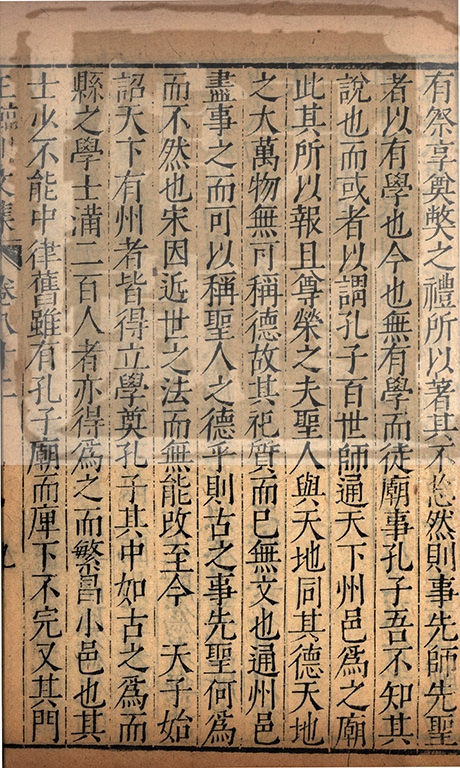 有祭享奠獘之禮所以著其不忘然則事先師先聖
者以有學也今也無有學而徒廟事孔子吾不知其
說也而或者以謂孔子百世師通天下州邑爲之廟
此其所以報且尊榮之夫聖人與天地同其德天地
之大萬物無可稱德故其祀質而已無文也通州邑
盡事之而可以稱聖人之德乎則古之事先聖何爲
而不然也宋因近世之法而無能改至今　天子始
詔天下有州者皆得立學奠孔子其中如古之爲而
縣之學士滿二百人者亦得爲之而繁昌小邑也其
士少不能中律舊雖有孔子廟而厘下不完又其門